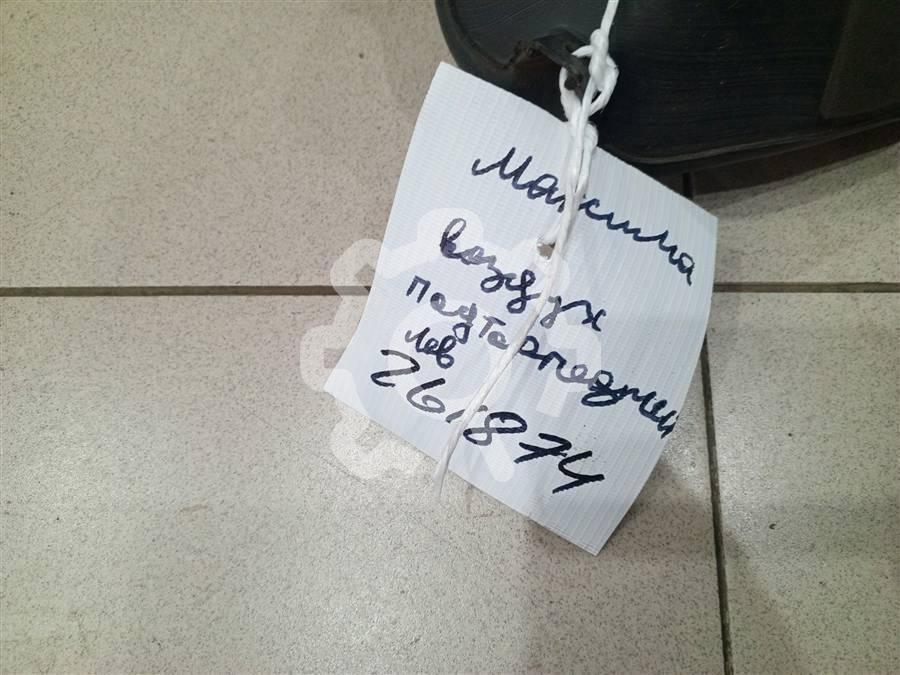 Максима
воздух
подторпедный
лев
261874